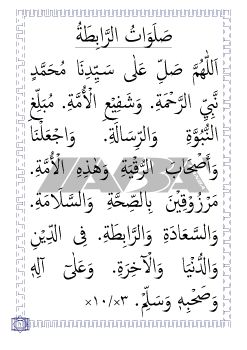 صَلَوَاتُ الرَّابِطَةُ
اَللّٰهُمَّ صَلِّ عَلٰى سَيِّدِنَا مُحَمَّدٍ
نَّبِيِّ الرَّحْمَةِ. وَشَفِيْعِ الْأُمَّةِ. مُبَلِّغِ
النُّبُوَّةِ وَالرِّسَالَةِ. وَاجْعَلْنَا
وَأَصْحَابَ الرُّقْيَةِ وَهٰذِهِ الْأُمَّةِ.
مَرْزُوْقِيْنَ بِالصِّحَّةِ وَالسَّلَامَةِ.
وَالسَّعَادَةِ وَالرَّابِطَةِ. فِى الدِّيْنِ
وَالدُّنْيَا وَالْآخِرَةِ. وَعَلىٰٓ آلِهٖ
وَصَحْبِهٖ وَسَلِّمْ. ٣×/١٠×